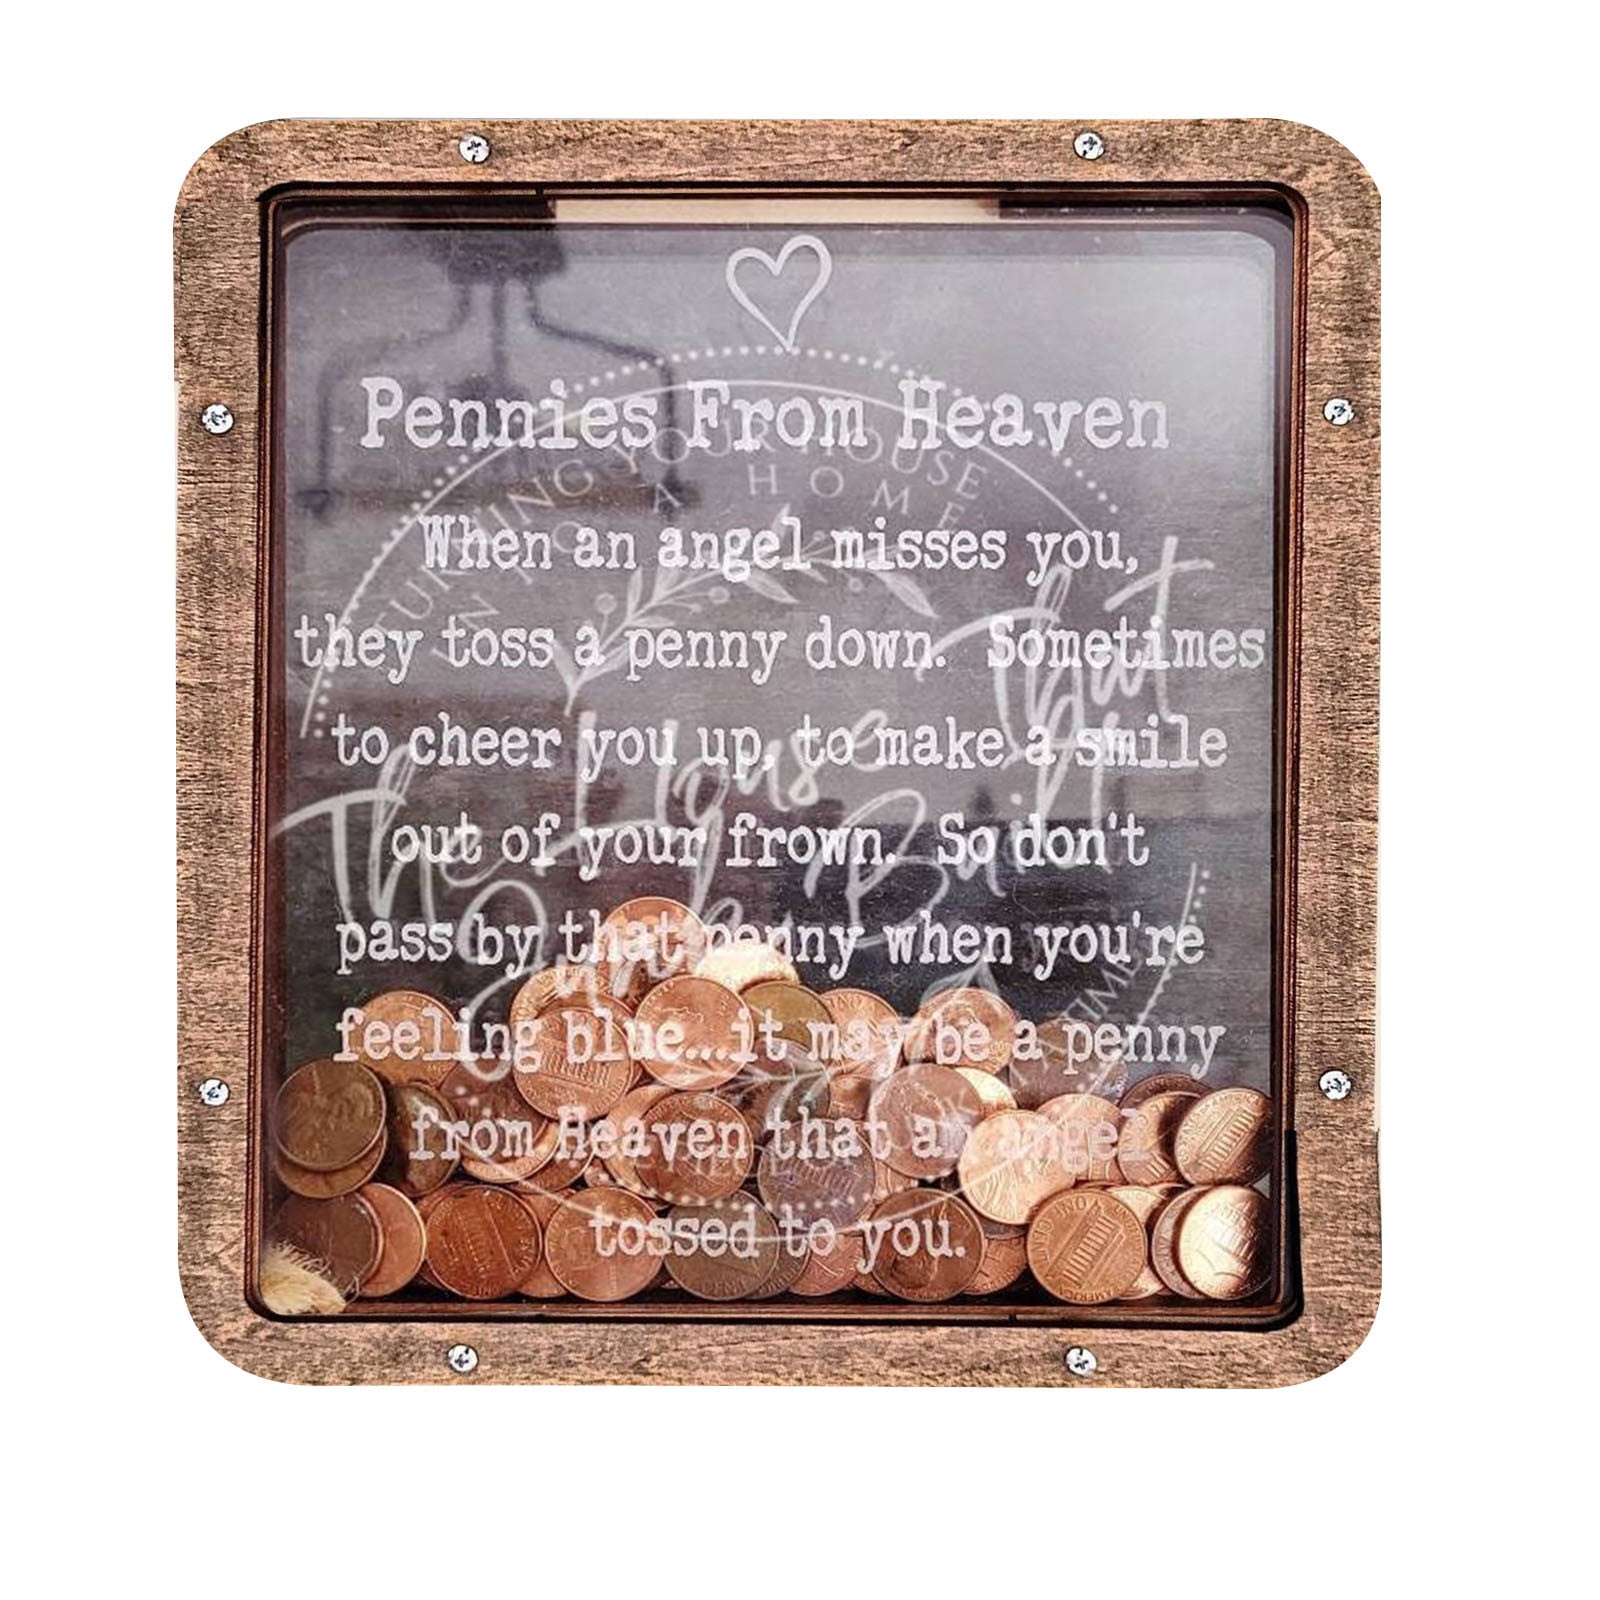 Pennies From Heaven
When an angel misses you,
they toss a penny down. Sometimes
to cheer you up, to make a smile
out of your frown. So don't
pass by that penny when you're
feeling blue...it may be a penny
from Heaven that an angel
tossed to you.
TURNING YOUR HOUSE
INTO A HOME
The House That
Built
TIME